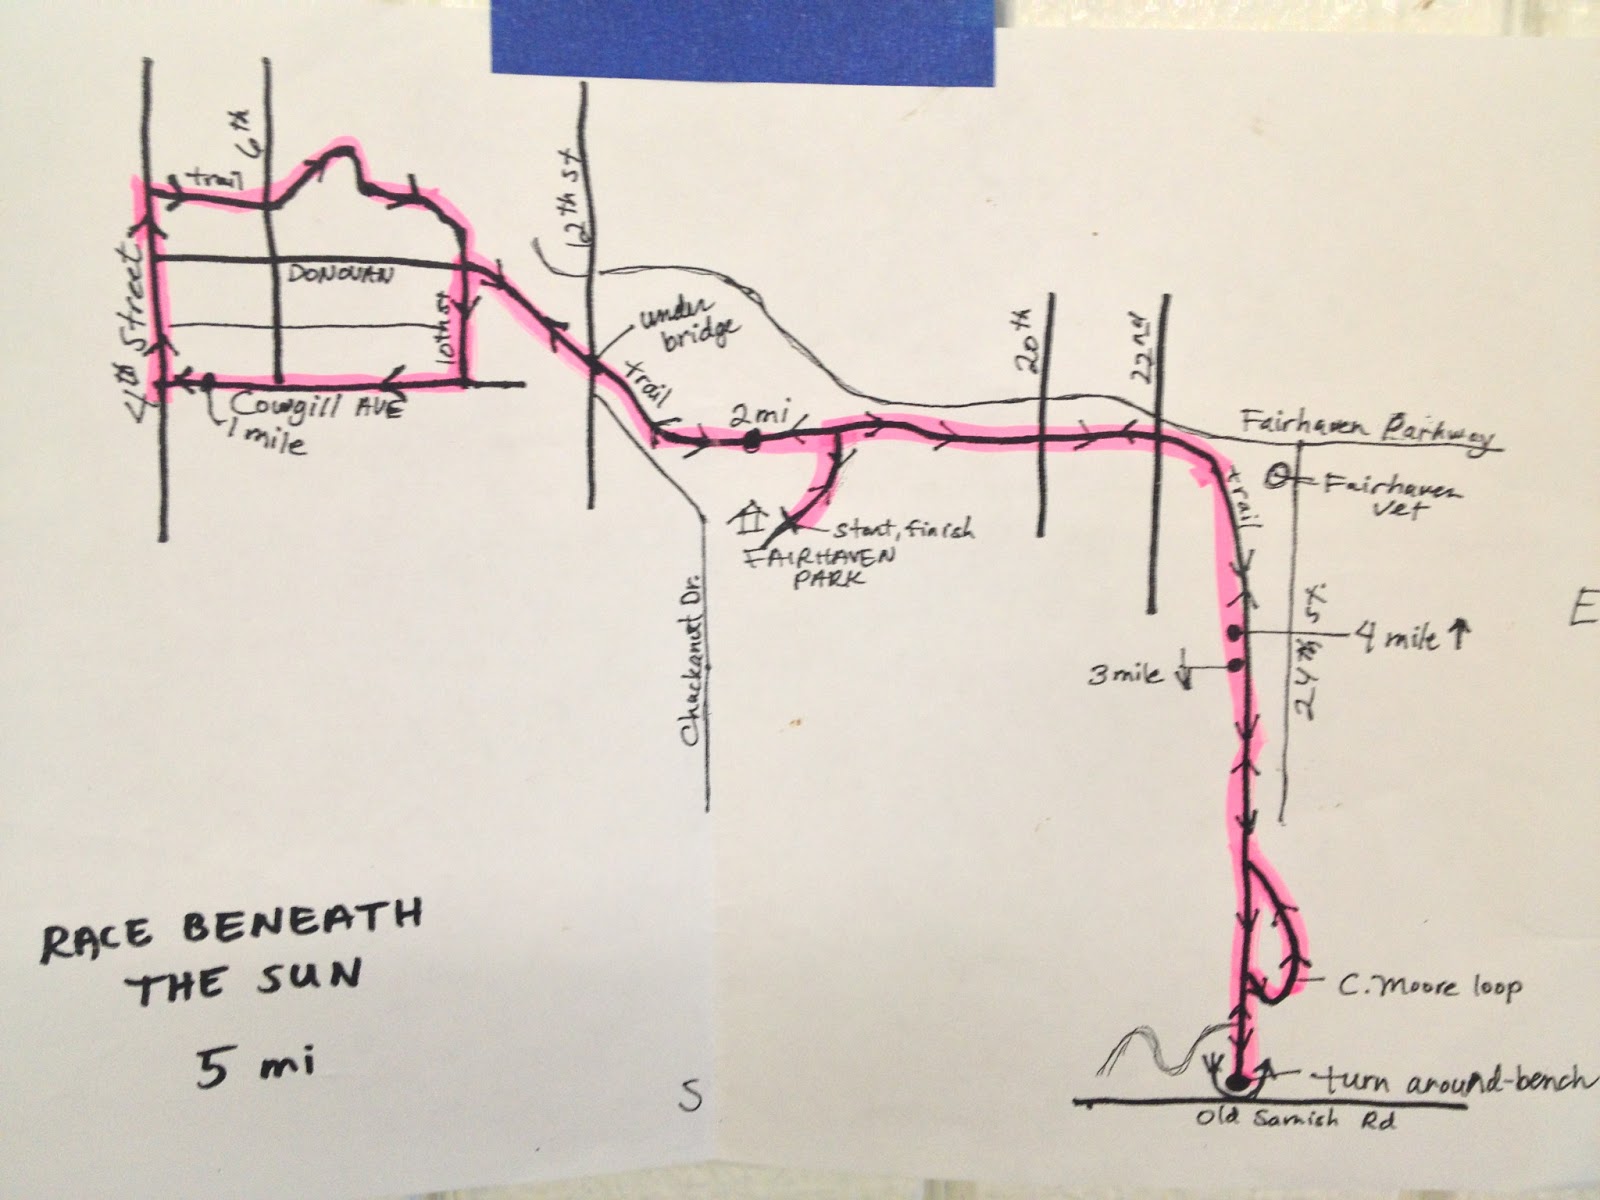 6th
trail
12th st
DONOVAN
4th Street
10th st
under
bridge
trail
20th
22nd
Cowgill AVE
1 mile
2mi
Fairhaven Parkway
trail
Fairhaven
Vet
start, finish
FAIRHAVEN
PARK
Chuckanut Dr.
24th St.
E
4 mile ↑
3 mile ↓
RACE BENEATH
THE SUN
5 mi
S
C. Moore loop
turn around-bench
Old Samish Rd